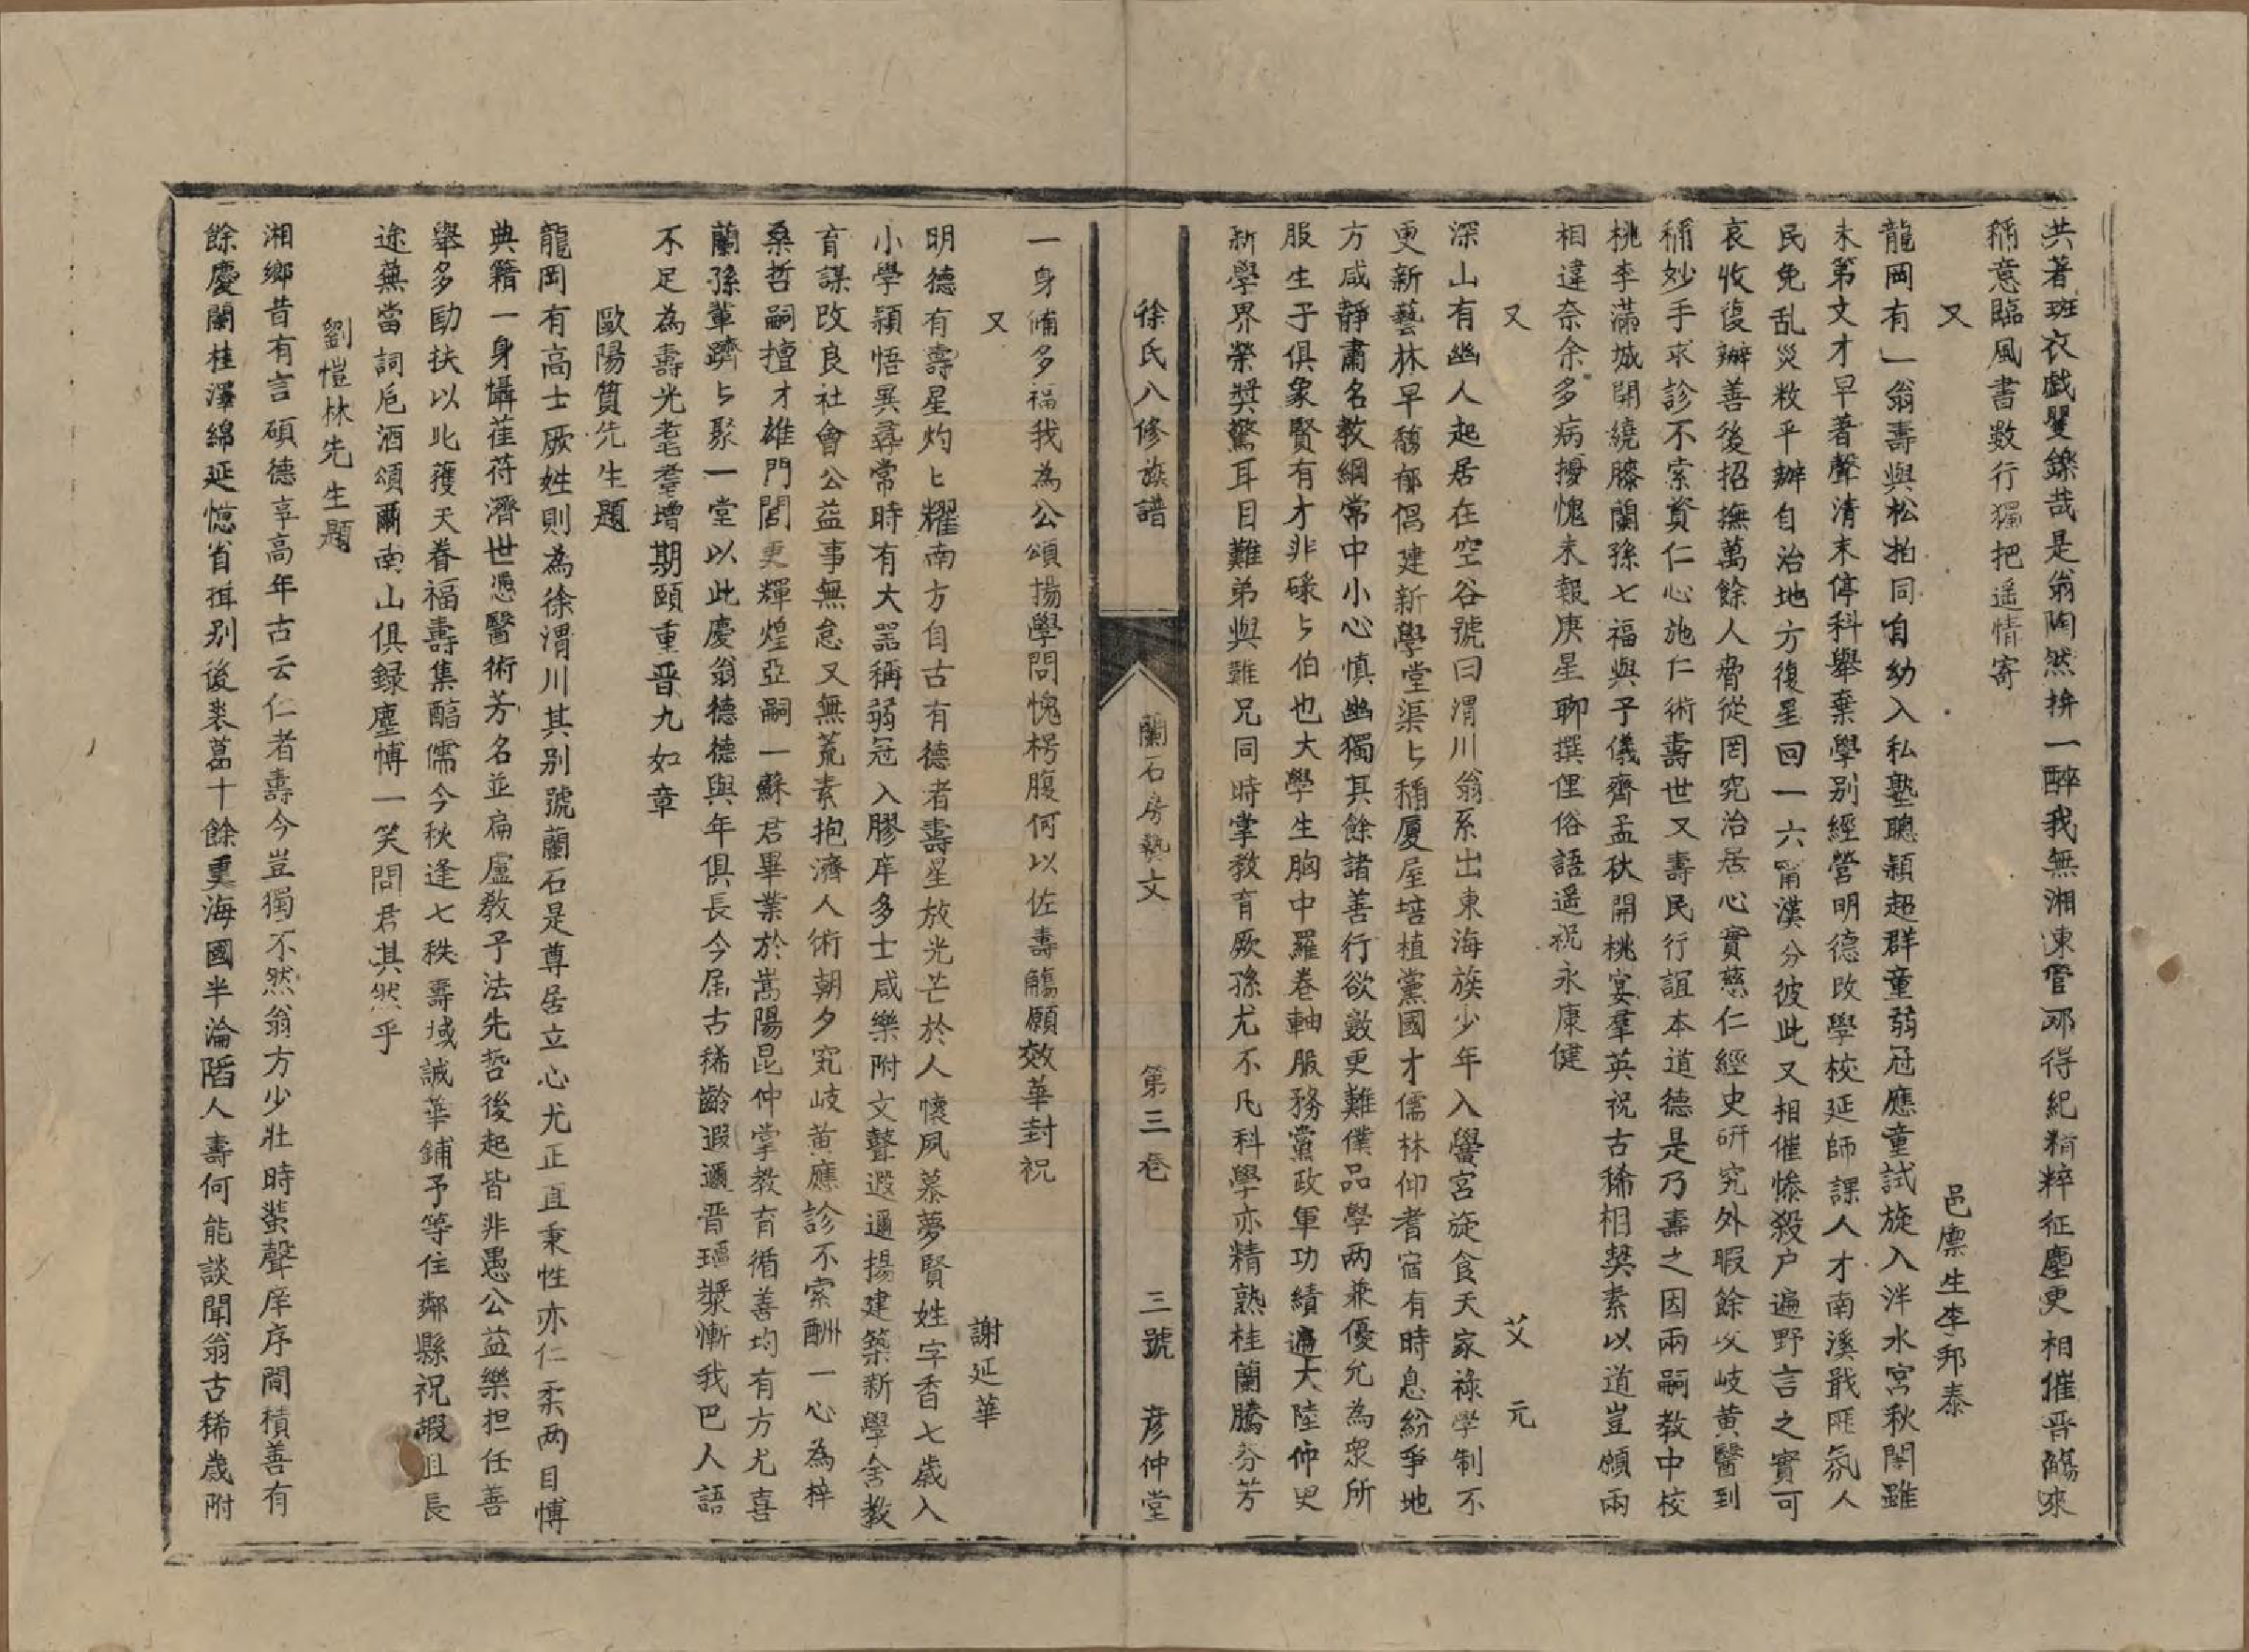 共著斑衣戲矍鑠哉是翁陶然拚一醉我無湘東管那得紀精粹征塵更相催晋觴來
稱意臨風書数行獨把遥情寄
又 邑廪生李邦泰
龍岡有一翁壽與松柏同自幼入私塾聰穎超群童弱冠應童試旋入泮水宮秋闈雖
未第文才早著聲清末停科舉棄學别經營明德改學校延師課人才南溪戢匪氛人
民免乱災敉平辦自治地方復星回一六甯漢分彼此又相催慘殺户遍野言之實可
哀收復辦善後招撫萬餘人脅從罔究治居心實慈仁經史研究外暇餘攻岐黄醫到
稱妙手求診不索資仁心施仁術壽世又壽民行誼本道德是乃壽之因兩嗣教中校
桃李滿城開繞膝蘭孫七福與子儀齊孟秋開桃宴羣英祝古稀相契素以道豈頗兩
相違奈余多病擾愧未報庚星聊撰俚俗語遥祝永康健
又 艾元
深山有幽人起居在空谷號曰渭川翁系出東海族少年入黌宮旋食天家祿學制不
更新藝林早馥郁倡建新學堂渠々稱厦屋培植黨國才儒林仰耆宿有時息紛爭地
方咸靜肅名教綱常中小心慎幽獨其餘諸善行欲數更難僕品學两兼優允為衆所
服生子俱象賢有才非碌々伯也大學生胸中羅卷軸服務黨政軍功績遍大陸仲史
新學界榮奬驚耳目難弟與難兄同時掌教育厥孫尤不凡科學亦精熟桂蘭騰芬芳
徐氏八修族譜 蘭石房藝文 第三卷 三號 彦仲堂
一身備多福我為公頌揚學問愧枵腹何以佐壽觴願效華封祝
又 謝延華
明德有壽星灼々耀南方自古有德者壽星放光芒於人懷夙慕夢賢姓字香七歲入
小學穎悟異尋常時有大器稱弱冠入膠庠多士咸樂附文聲遐邇揚建築新學舍教
育謀改良社會公益事無怠又無荒素抱濟人術朝夕究岐黄應診不索酬一心為梓
桑哲嗣擅才雄門閭更輝煌亞嗣一蘇君畢業於嵩陽昆仲掌教育循善均有方尤喜
蘭孫輩躋々聚一堂以此慶翁德德與年俱長今届古稀齡遐邇晋瑶漿慚我巴人語
不足為壽光耄耋增期頤重晋九如章
歐陽質先生題
龍岡有高士厥姓則為徐渭川其别號蘭石是尊居立心尤正直秉性亦仁柔两目博
典籍一身懾萑苻濟世憑醫術芳名並扁盧教子法先哲後起皆非愚公益樂担任善
舉多勷扶以此蒦天眷福壽集醕儒今秋逢七秩壽域誠華鋪予等住鄰縣祝嘏且長
途蕪當詞卮酒頌爾南山俱録塵博一笑問君其然乎
劉愷林先生題
湘鄉昔有言碩德享高年古云仁者壽今豈獨不然翁方少壯時蜚聲庠序間積善有
餘慶蘭桂澤綿延憶省揖别後裘葛十餘更海國半淪陷人壽何能談聞翁古稀歲附